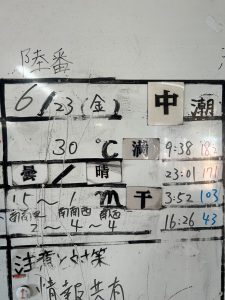 陸番
6/23(金) 中潮
30 ℃ 満 9:38 182
曇/晴 23:01 171
15~1 m 干 3:52 103
南南西 南西
2~4~4 16:26 43
注意と対策
情報共有